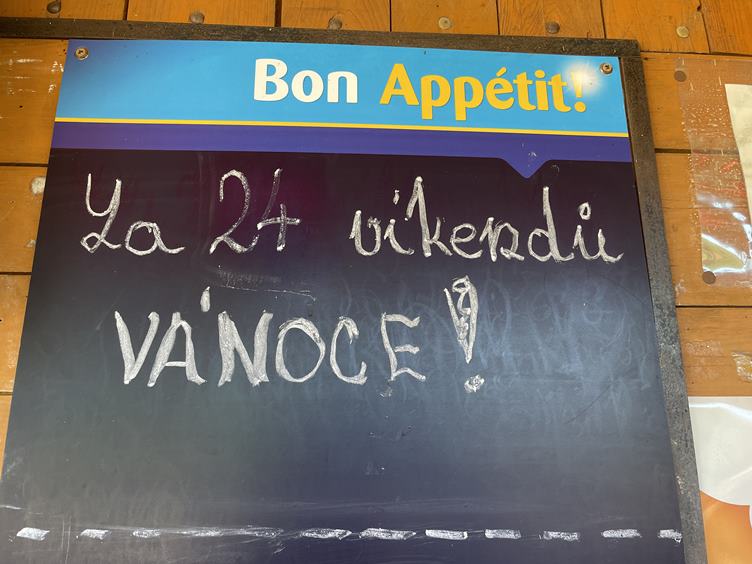 Bon Appétit!
Za 24 víkendů
VÁNOCE!